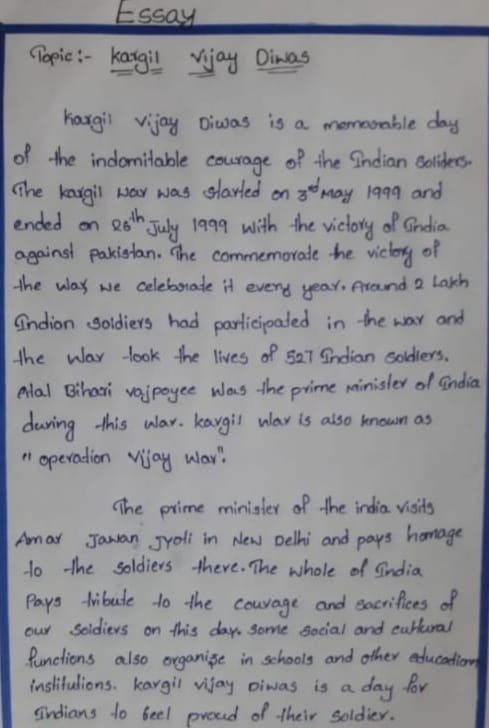 Essay
Topic :- Kargil Vijay Diwas
Kargil Vijay Diwas is a memorable day
of the indomitable courage of the Indian Soliders.
The Kargil War was started on 3rd May 1999 and
ended on 26th July 1999 with the victory of India
against Pakistan. The commemorate the victory of
the war, we celeborate it every year. Around 2 Lakh
Indian soldiers had participated in the war and
the war took the lives of 527 Indian soldiers.
Atal Bihari Vajpoyee was the prime Minister of India
during this war. Kargil war is also known as
" operation Vijay War".
The prime minister of the india visits
Amar Jawan Jyoti in New Delhi and pays homage
to the soldiers there. The whole of India
Pays tribute to the courage and sacrifices of
our soldiers on this day. Some social and cultural
functions also organise in schools and other education
institutions. Kargil Vijay Diwas is a day for
Indians to feel proud of their soldier.